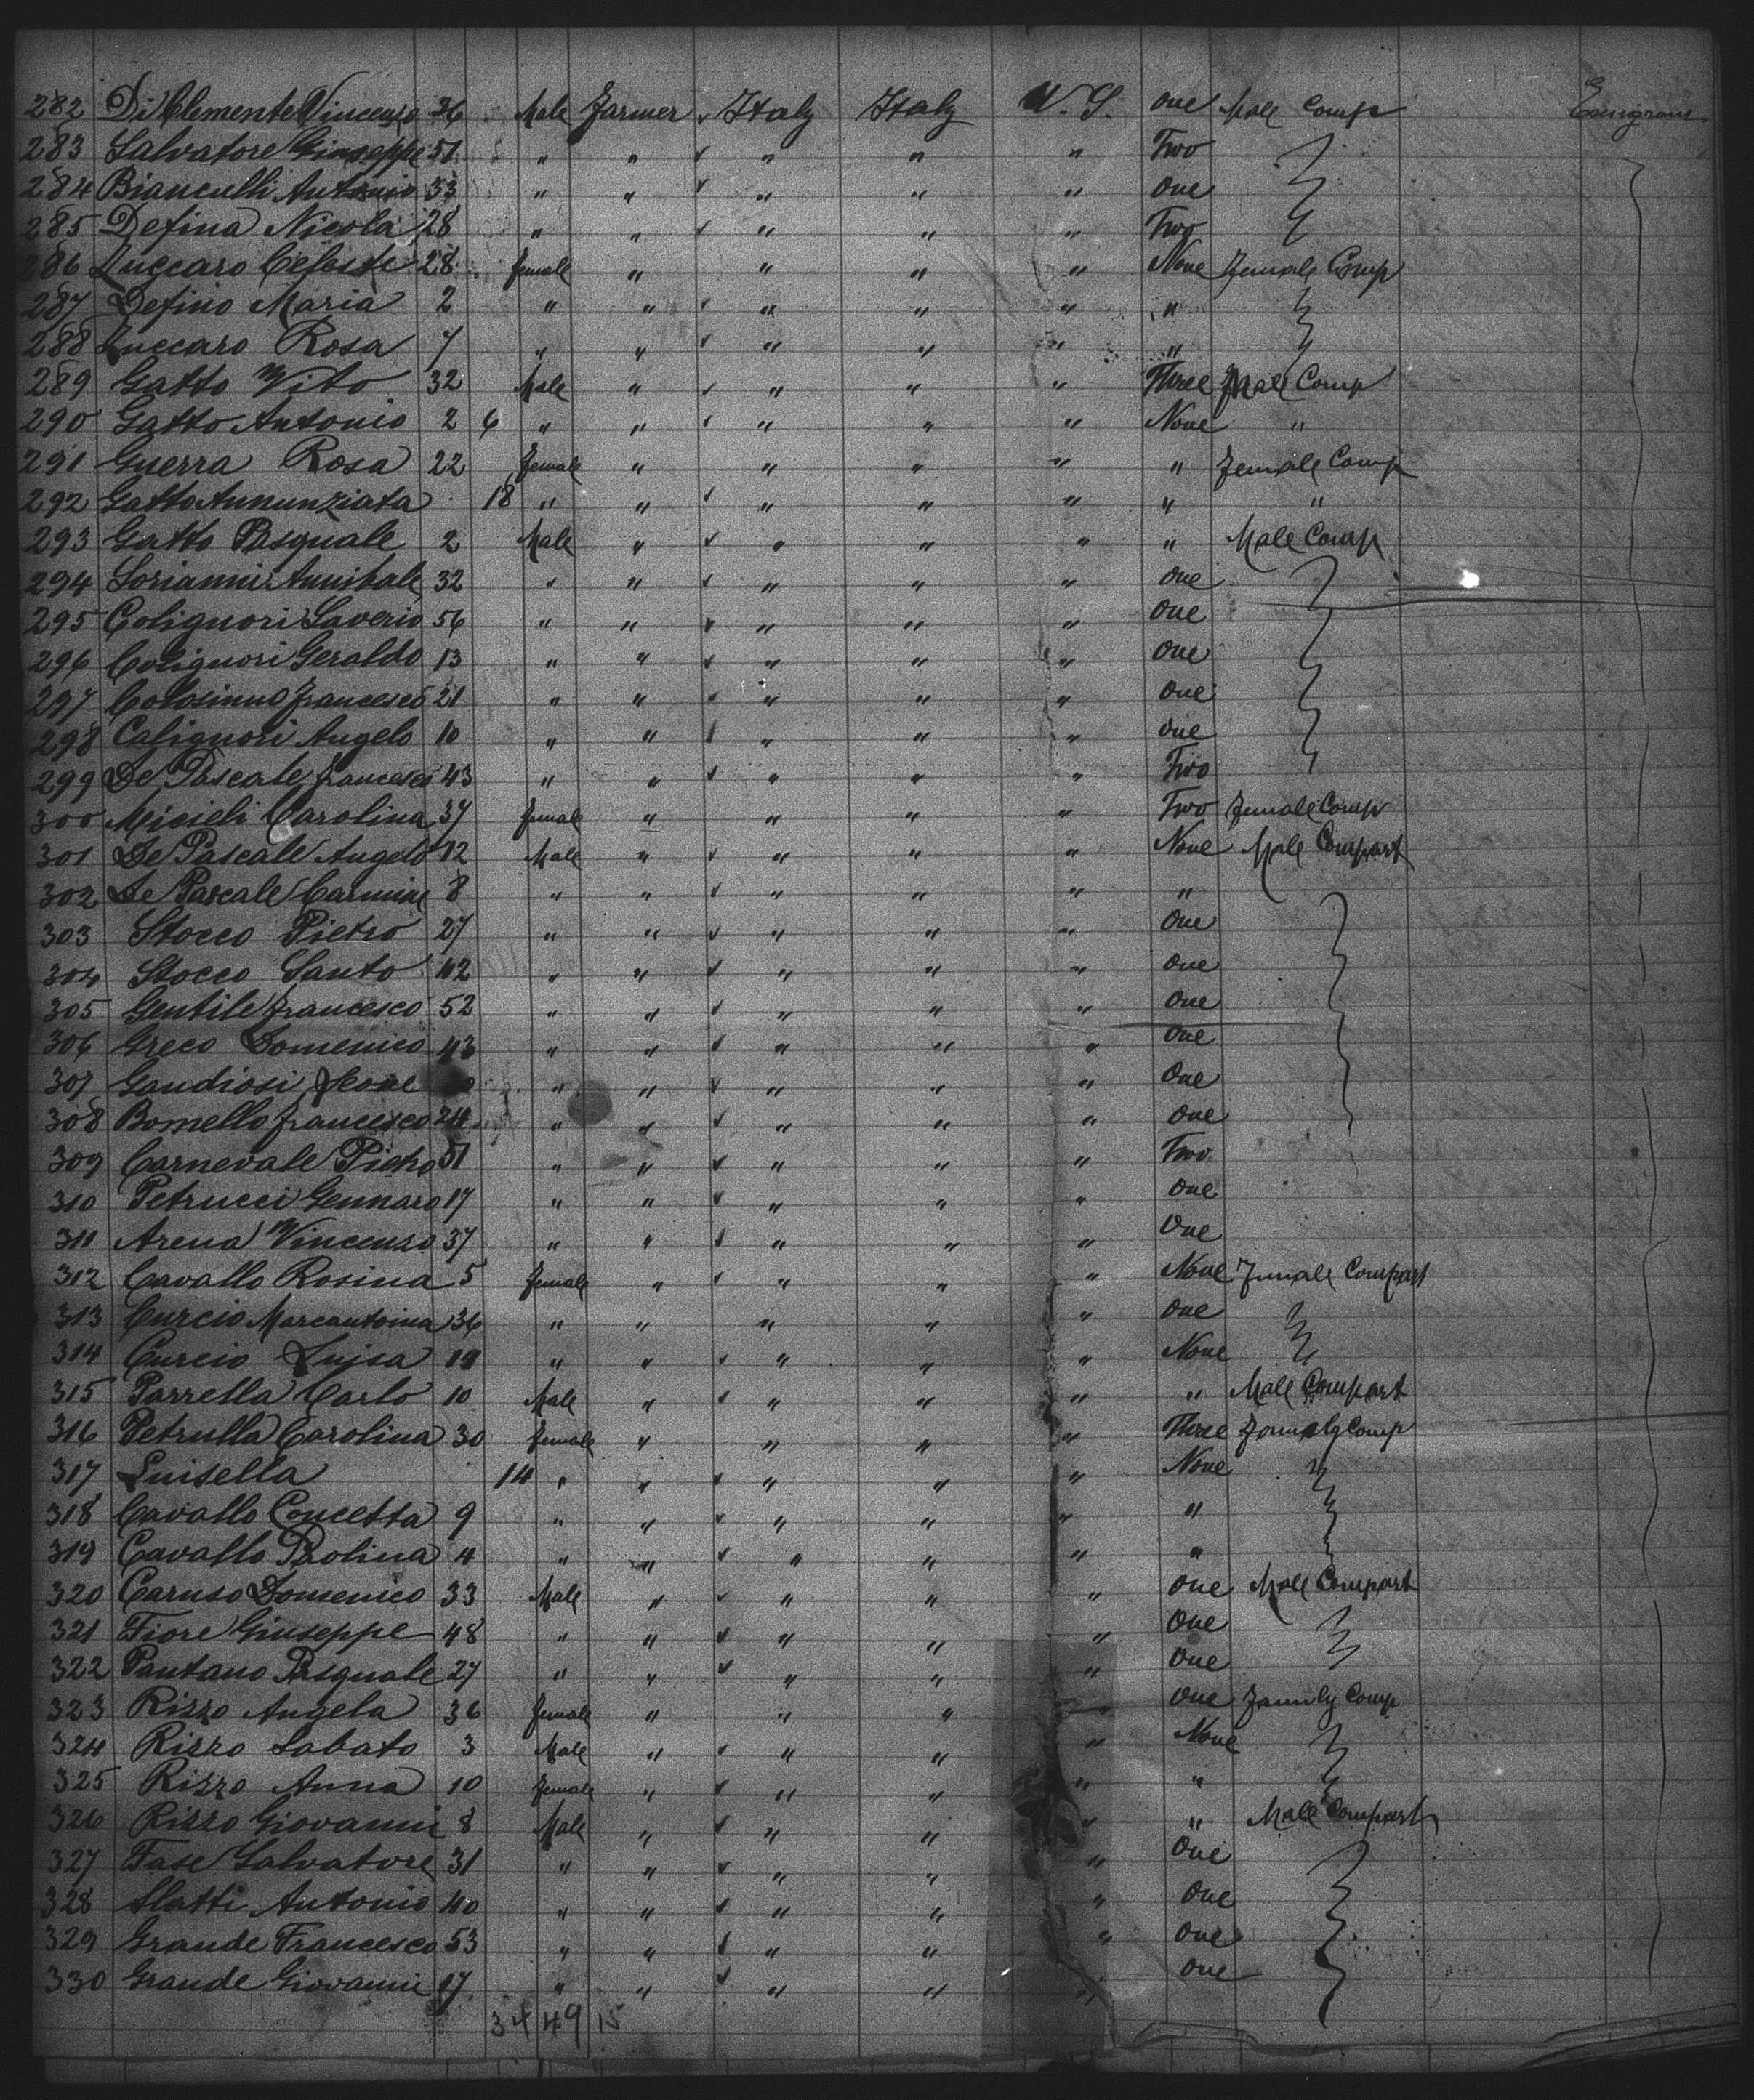 282 DiClemente Vincenzo 26 Male Farmer ✓ Italy Italy U. S. One Male Comp Emigrant
283 Salvatore Giuseppe 51 " " ✓ " " " Two
284 Bianculli Antonio 53 " " ✓ " " " One
285 Defina Nicola 28 " " ✓ " " " Two
286 Zuccaro Celeste 28 female " " " " None Female Comp
287 Defino Maria 2 " " ✓ " " " "
288 Zuccaro Rosa 7 " " ✓ " " " "
289 Gatto Vito 32 Male " ✓ " " " Three Male Comp
290 Gatto Antonio 2 6 " " ✓ " " " None "
291 Guerra Rosa 22 female " " " " " Female Comp
292 Gatto Annunziata 18 " " ✓ " " " " "
293 Gatto Pasquale 2 Male " ✓ " " " " Male Comp
294 Sorianni Annibale 32 " " ✓ " " " One
295 Colignori Saverio 56 " " ✓ " " " One
296 Colignori Geraldo 13 " " ✓ " " " One
297 Colosimo Francesco 21 " " ✓ " " " One
298 Calignori Angelo 10 " " ✓ " " " One
299 De Pascale Francesco 43 " " ✓ " " " Two
300 Micieli Carolina 37 female " " " " Two Female Comp
301 De Pascale Angelo 12 Male " ✓ " " " None Male Compart
302 De Pascale Carmine 8 " " ✓ " " " "
303 Stocco Pietro 27 " " ✓ " " " One
304 Stocco Santo 42 " " ✓ " " " One
305 Gentile Francesco 52 " " ✓ " " " One
306 Greco Domenico 43 " " ✓ " " " One
307 Gaudiosi Leone " " ✓ " " " One
308 Bomello Francesco 24 " " ✓ " " " One
309 Carnevale Pietro 51 " " ✓ " " " Two
310 Petrucci Gennaro 17 " " ✓ " " " One
311 Arena Vincenzo 37 " " ✓ " " " One
312 Cavallo Rosina 5 female " ✓ " " " None Female Compart
313 Curcio Marcantonia 36 " " " " " One
314 Curcio Luisa 19 " " ✓ " " " None
315 Parrella Carlo 10 Male " ✓ " " " " Male Compart
316 Petrulla Carolina 30 female " " " " Three Family Comp
317 Luisella 14 " " ✓ " " " None
318 Cavallo Concetta 9 " " ✓ " " " "
319 Cavallo Paolina 4 " " ✓ " " " "
320 Caruso Domenico 33 Male " ✓ " " " One Male Compart
321 Fiore Giuseppe 48 " " ✓ " " " One
322 Pantano Pasquale 27 " " ✓ " " " One
323 Rizzo Angela 36 female " " " " One Family Comp
324 Rizzo Sabato 3 Male " ✓ " " " None
325 Rizzo Anna 10 female " ✓ " " " "
326 Rizzo Giovanni 8 Male " ✓ " " " " Male Compart
327 Fase Salvatore 31 " " ✓ " " " One
328 Slatti Antonio 40 " " ✓ " " " One
329 Grande Francesco 53 " " ✓ " " " One
330 Grande Giovanni 17 " " ✓ " " " One
34 49 15